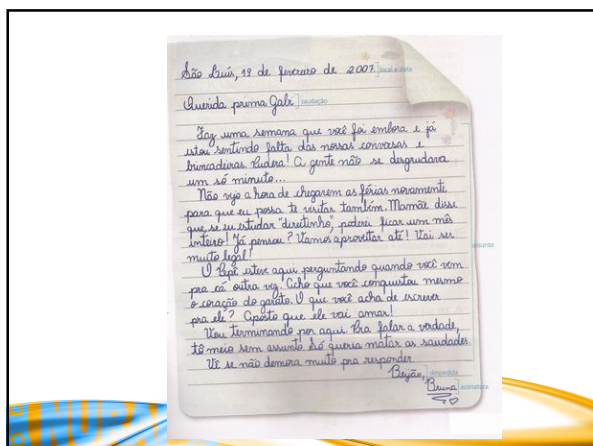 São Luís, 19 de fevereiro de 2007. local e data
Querida prima Gabi saudação
Faz uma semana que você foi embora e já
estou sentindo falta das nossas conversas e
brincadeiras. Pudera! A gente não se desgrudava
um só minuto...
Não vejo a hora de chegarem as férias novamente
para que eu possa te visitar também. Mamãe disse
que, se eu estudar "direitinho", poderei ficar um mês
inteiro! Já pensou? Vamos aproveitar até! Vai ser
muito legal! assunto
O Pepê esteve aqui perguntando quando você vem
pra cá outra vez. Acho que você conquistou mesmo
o coração do garoto. O que você acha de escrever
pra ele? Aposto que ele vai amar!
Vou terminando por aqui. Pra falar a verdade,
tô meio sem assunto. Só queria matar as saudades.
Vê se não demora muito pra responder.
Beijão, despedida
Bruna assinatura